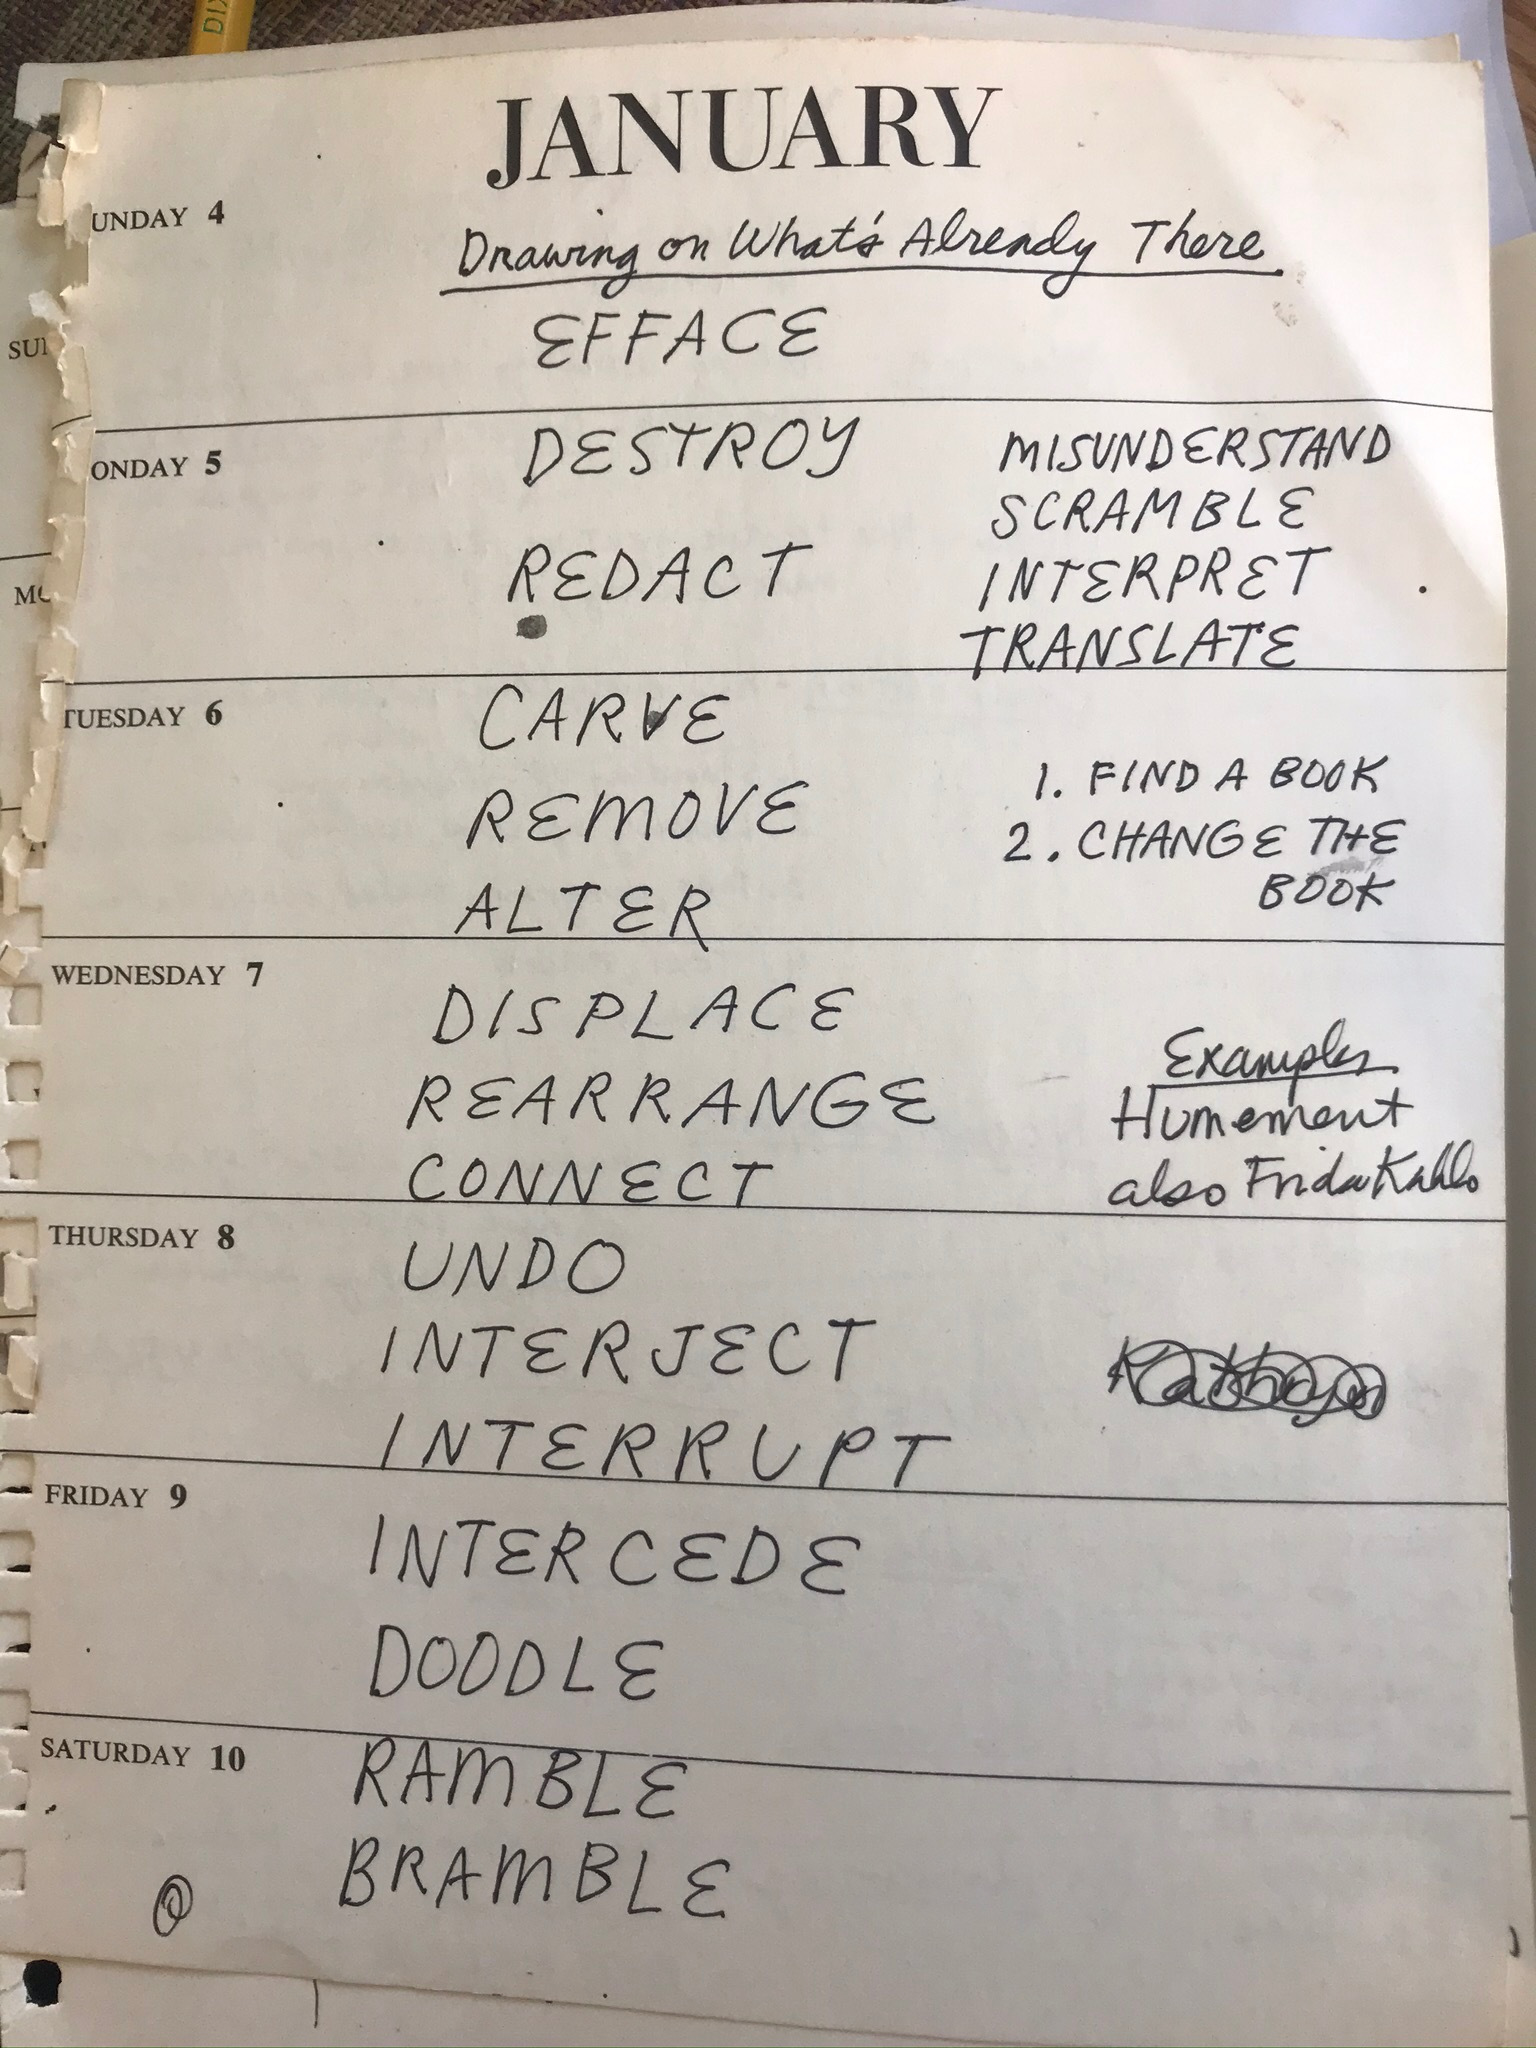 JANUARY
UNDAY 4
Drawing on What's Already There
EFFACE
SUN
ONDAY 5
DESTROY
REDACT
MISUNDERSTAND
SCRAMBLE
INTERPRET
TRANSLATE
TUESDAY 6
CARVE
REMOVE
ALTER
1. FIND A BOOK
2. CHANGE THE
BOOK
WEDNESDAY 7
DISPLACE
REARRANGE
CONNECT
Examples
Humement
also Frida Kahlo
THURSDAY 8
UNDO
INTERJECT
INTERRUPT
FRIDAY 9
INTERCEDE
DOODLE
SATURDAY 10
RAMBLE
BRAMBLE